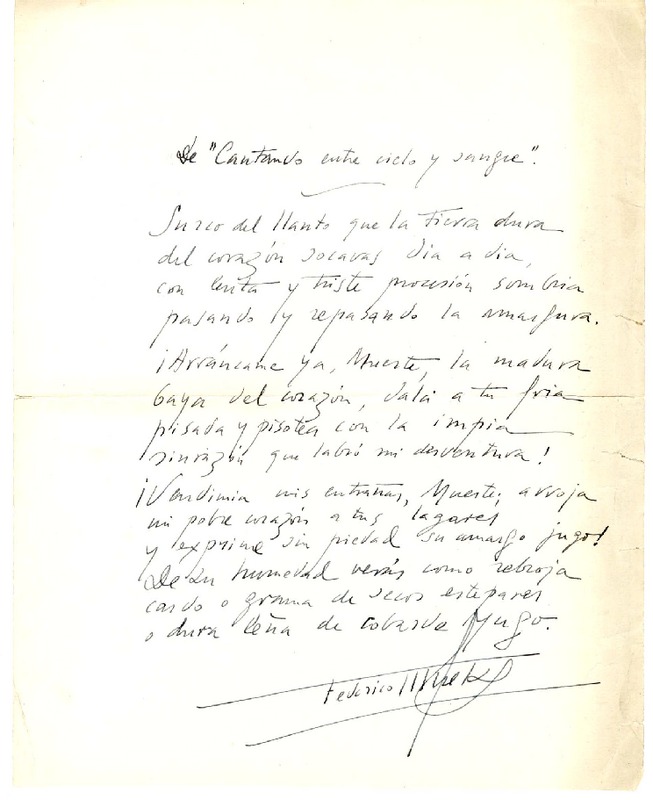 De "Cantando entre cielo y sangre".
Surco del llanto que la tierra dura
del corazón socavas día a día,
con lenta y triste procesión sombría
pasando y repasando la amargura.
¡Arráncame ya, Muerte, la madura
baya del corazón, dala a tu fría
pisada y pisotea con la impía
sinrazón que labró mi desventura!
¡Vendimia mis entrañas, Muerte; arroja
mi pobre corazón a tus lagares
y exprime sin piedad su amargo jugo!
De su humedad verás como rebroja
cardo o grama de secos estepares
o dura leña de cobarde yugo.
Federico Muelas